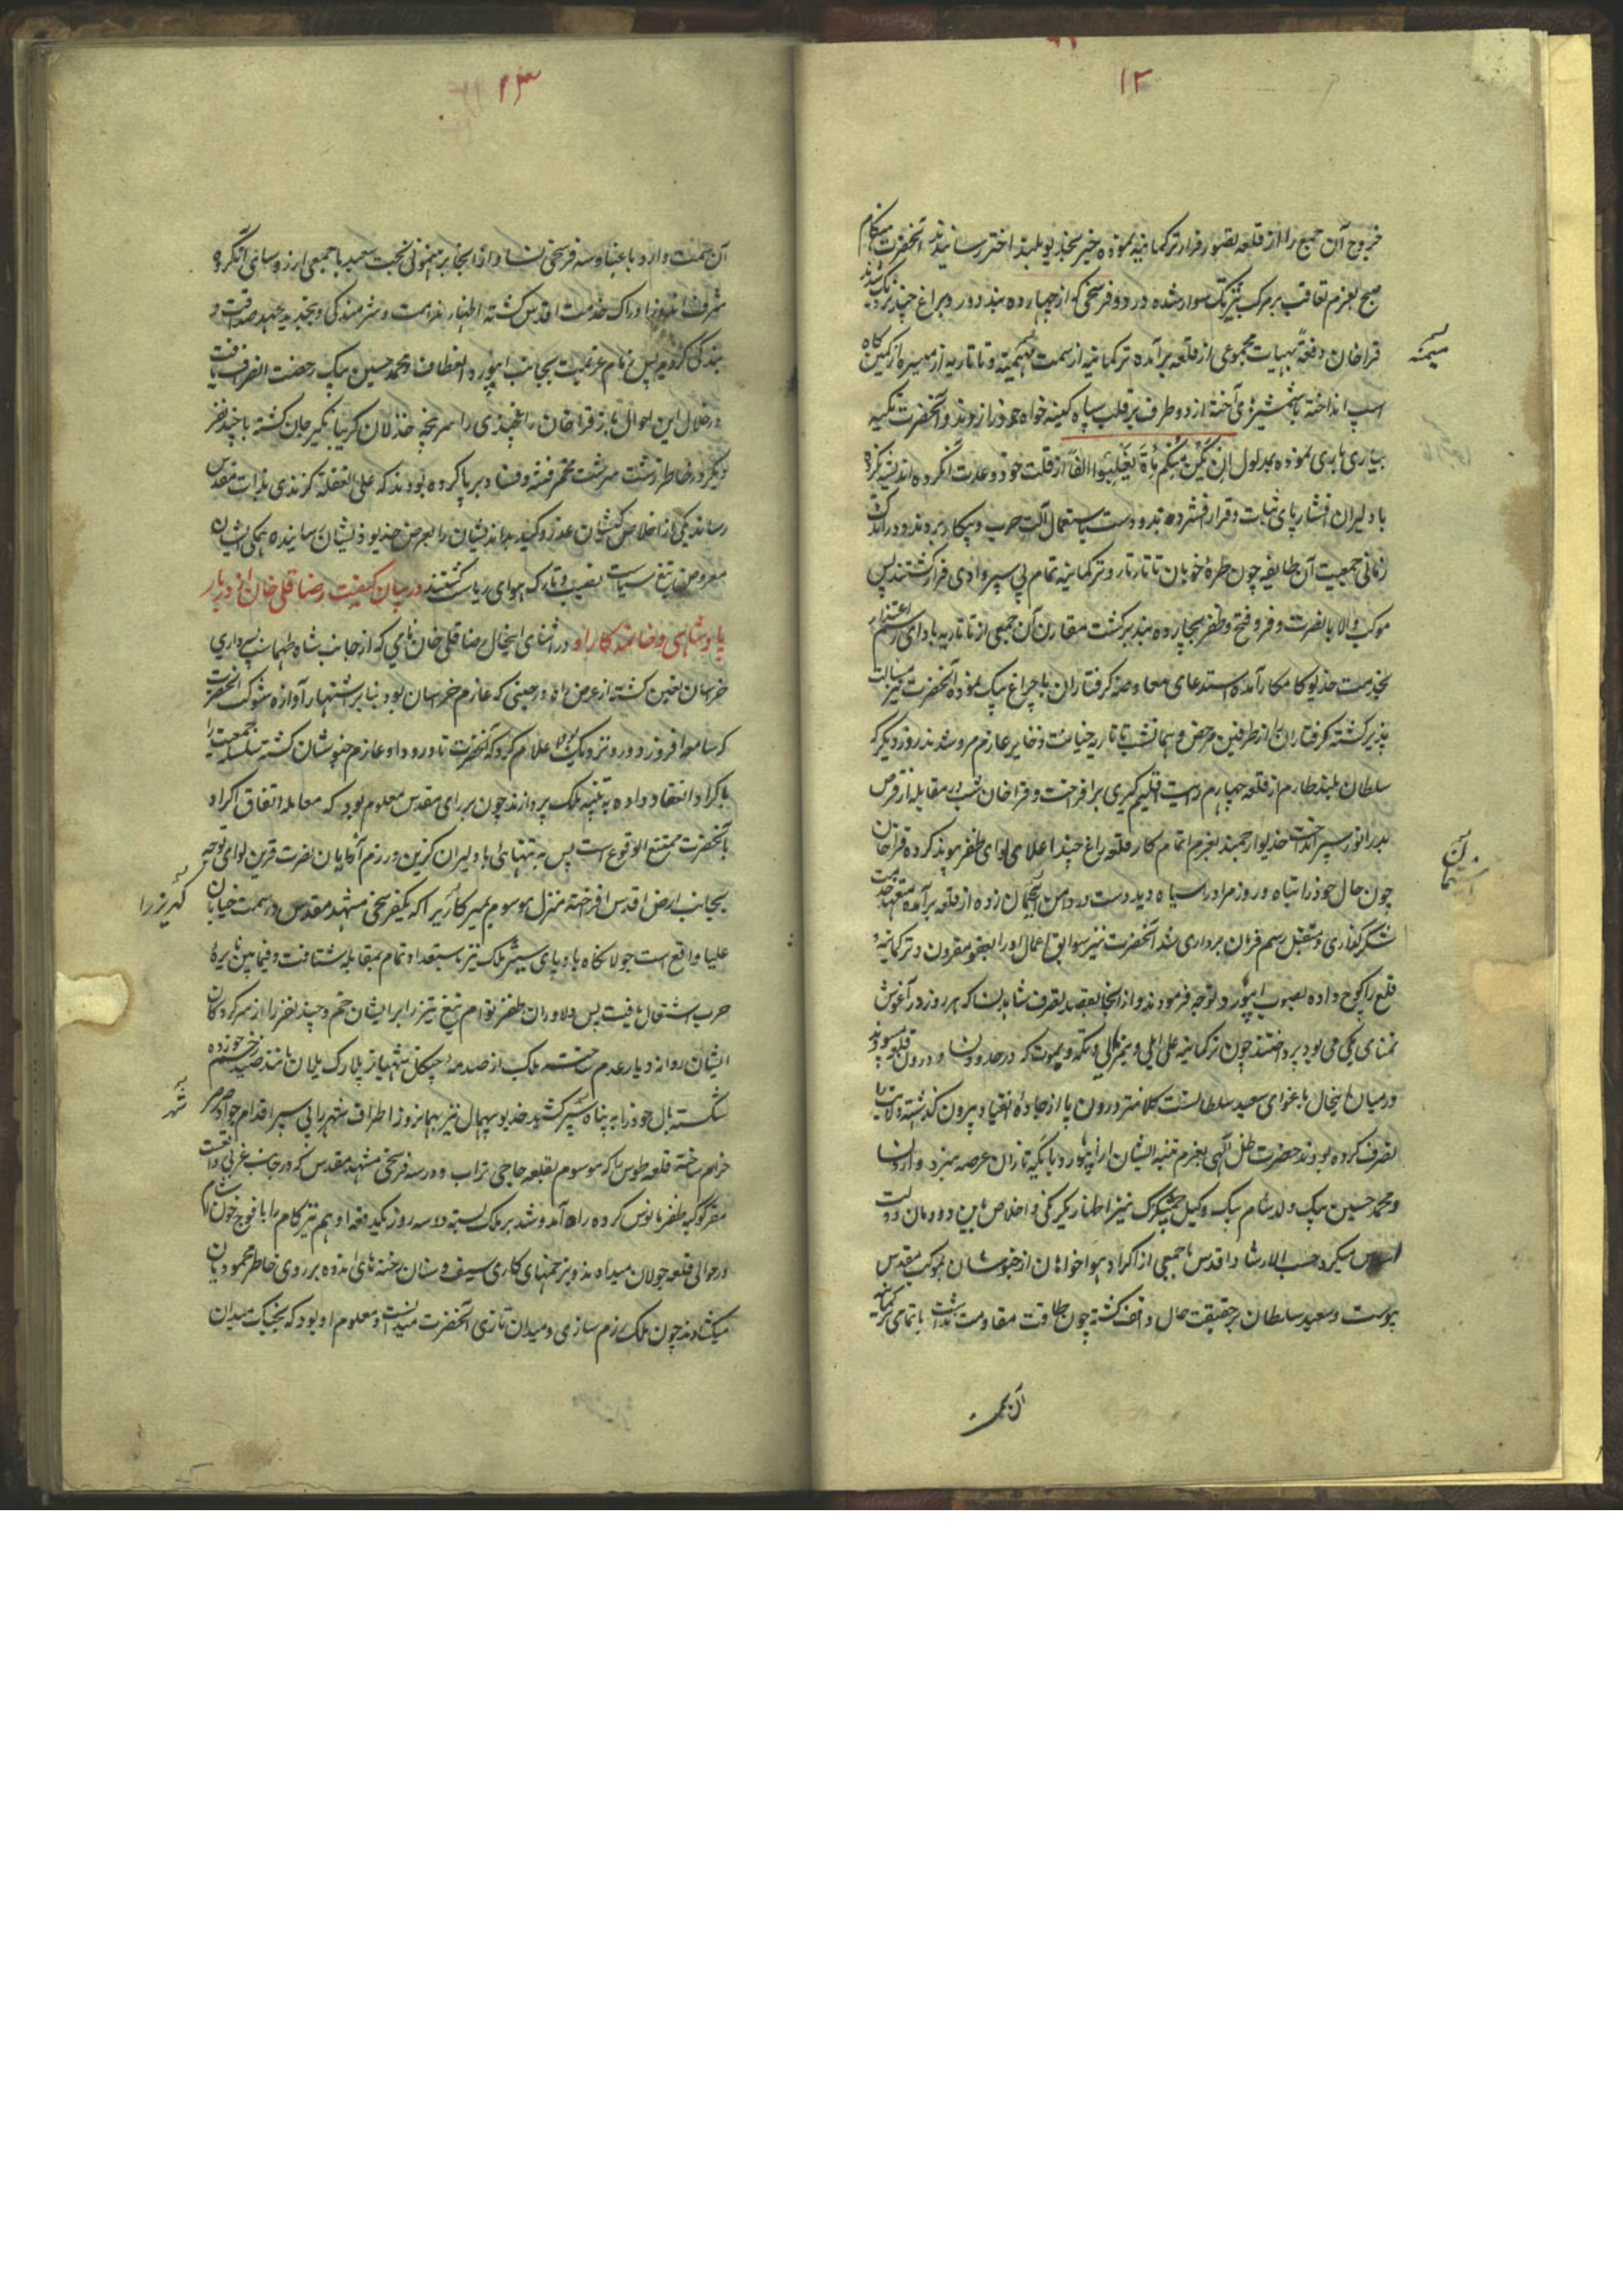 ۱۲
خروج آن جمع را از قلعه تصور فرار ترکمانیه نموده خبر بخدیو بلند اختر رسانیدند آنحضرت هنگام
صبح بعزم تعاقب بر مرکب تیزتک سوار شده در دو فرسخی که از چهارده بند دور و بر اغ چند نزدیک شدند
قراخان دفعةً بهیات مجموعی از قلعه برآمده ترکمانیه از سمت میمنه و تاتاریه از میسره از کمین کاه
میمنه
اسب انداخته با شمشیرهای آخته از دو طرف بر قلب سپاه کینه خواه حمله‌ور از و آنحضرت تکیه
بیاری باری نموده بمدلول ان یکن منکم مأة یغلبوا الفا از قلت خود و عدت آنگروه اندیشه نکرده
با دلیران افشار پای ثبات و قرار افشرده دست باستعمال آلت حرب و پیکار بردند و در اندک
زمانی جمعیت آن طایفه چون طره خوبان تاتار تار و ترکمانیه تمام پی سپر وادی فرار کشتند پس
موکب والا با نصرت و فر و فتح و ظفر بچارده بند برکشت مقارن آن جمعی از تاتاریه با دای مراسم اعتذار
بخدمت خدیو کامکار آمده استدعای معاوضه کرفتاران با چراغ بیک نموده آنحضرت نیز مسالت
پذیر کشته کرفتاران از طرفین مرخص و همانشب تاتاریه عازم مرو شدند روز دیگر که
سلطان بلند طارم از قلعه چهارم رایت اقلیم گیری برافراخت و قراخان شب در مقابله از قرص
بدر انور سپر انداخت خدیو ارجمند بعزم اتمام کار قلعه باغ چند اعلام لوای ظفر پیوند کرده قراخان
چون حال خود را تباه و روز مراد را سیاه دید دست در دامن استیمان زده از قلعه برآمده متعهد خدمت
استیمان
شکر گذاری و متقبل رسم فرمان برداری شد آنحضرت نیز سوابق اعمال او را بعفو مقرون و ترکمانیهٔ
قلع را کوچ داده بصوب ابیورد توجه فرمودند و از آنجا بقصد تصرف شاهد نسا که هر روز در آغوش
تمنای یکی می بود پرداختند چون ترکمانیه علی ایلی و یمرلی و تکه و یموت که در حدود نسا و درون
در میان اینحال باغوای سعید سلطان کلانتر درون پا از جاده انقیاد بیرون کذاشته
تصرف کرده بودند حضرت ظل الهی بعزم تنبیه ایشان از ابیورد با یکه تازان عرصه نبرد وارد نسا
و محمد حسین بیک ولد سام بیک وکیل چمشکزک نیز اظهار یکرنگی و اخلاص باین دودمان دولت
اساس میکرد حسب الارشاد اقدس با جمعی از اکراد هواخواهان از خبوشان بموکب مقدس
پیوست و سعید سلطان بر حقیقت حال واقف کشته چون طاقت مقاومت نداشت با تمامی ترکمانیه
آن سمت
۱۳
آن سمت وارد باغباد سه فرسخی نسا و از آنجا برهنمونی بخت سعید با جمعی از روسای آنگروه
شرف اندوز ادراک خدمت اقدس کشته اظهار ندامت و شرمندکی و تجدید عهد صداقت و
بندکی کردند پس زمام عزیمت بجانب ابیورد انعطاف و محمد حسین بیک رخصت انصراف یافت
در خلال این احوال باز قراخان را سرپنجه خذلان کریبانگیر جان کشته با چند نفر
دیگر در خاطر زشت سرشت تخمر فتنه و فساد برپا کرده بودند که علی الغفله کزندی بذات مقدس
رسانند یکی از اخلاص کیشان غدر و کید بد اندیشان را بعرض خدیو ذیشان رسانیده همکی ایشان
معروض تیغ سیاست و تارکه هوای ریاست کشتند در بیان کیفیت رضا قلی خان از دربار
پادشاهی و خاتمه کار او در اثنای اینحال رضا قلی خان نامی که از جانب شاه طهماسب بسرداری
خراسان تعیین کشته از عرض راه در حینی که عازم خراسان بود بنابر اشتهار آوازه شوکت آنحضرت
که سامعه افروز دور و نزدیک بود اعلام کرد که آنحضرت تا ورود او عازم خبوشان کشته سلسله جمعیت را
با کراد انعقاد داده به تنبیه ملک پردازند چون بر رای مقدس معلوم بود که معامله اتفاق اکراد
با آنحضرت ممتنع الوقوع است پس به تنهائی با دلیران کزین و رزم آزمایان نصرت قرین لوای توجه
بجانب ارض اقدس افراخته منزل موسوم بمیر کاریز را که یکفرسخی مشهد مقدس در سمت خیابان
کهریز را
علیا واقع است جولانکاه باد پای سپهر ملک نیز باستعداد تمام بمقابله شتافت و فیما بین نایرهٔ
حرب اشتعال یافت پس دلاوران ظفر توام تیغ تیز را بر ایشان حکم و چند نفر را از سرکردکان
ایشان روانه دیار عدم ساخت ملک از صدمهٔ چنکال شهباز پلارک یلان مانند صید زخم خورده
شکسته بال خود را به پناه شهر کشید خدیو بیهمال نیز همان روز اطراف شهر را پی سپر اقدام جواد صرصر
شهر
خرام ساخته قلعه طوس را که موسوم بقلعه حاجی تراب و در سه فرسخی مشهد مقدس که در جانب غربی واقعست
مقر کوکبه ظفر مانوس کرده راه آمد و شد بر ملک بسته دو سه روز یکدفعه او هم تیز کام را با فوج خون آشام
در حوالی قلعه جولان میدادند و بزخمهای کاری سیف و سنان رخنه های اندوه بر روی خاطر محمودیان
میکشادند چون ملک رزم سازی و میدان تازی آنحضرت میدانست و معلوم او بود که بجنک میدان